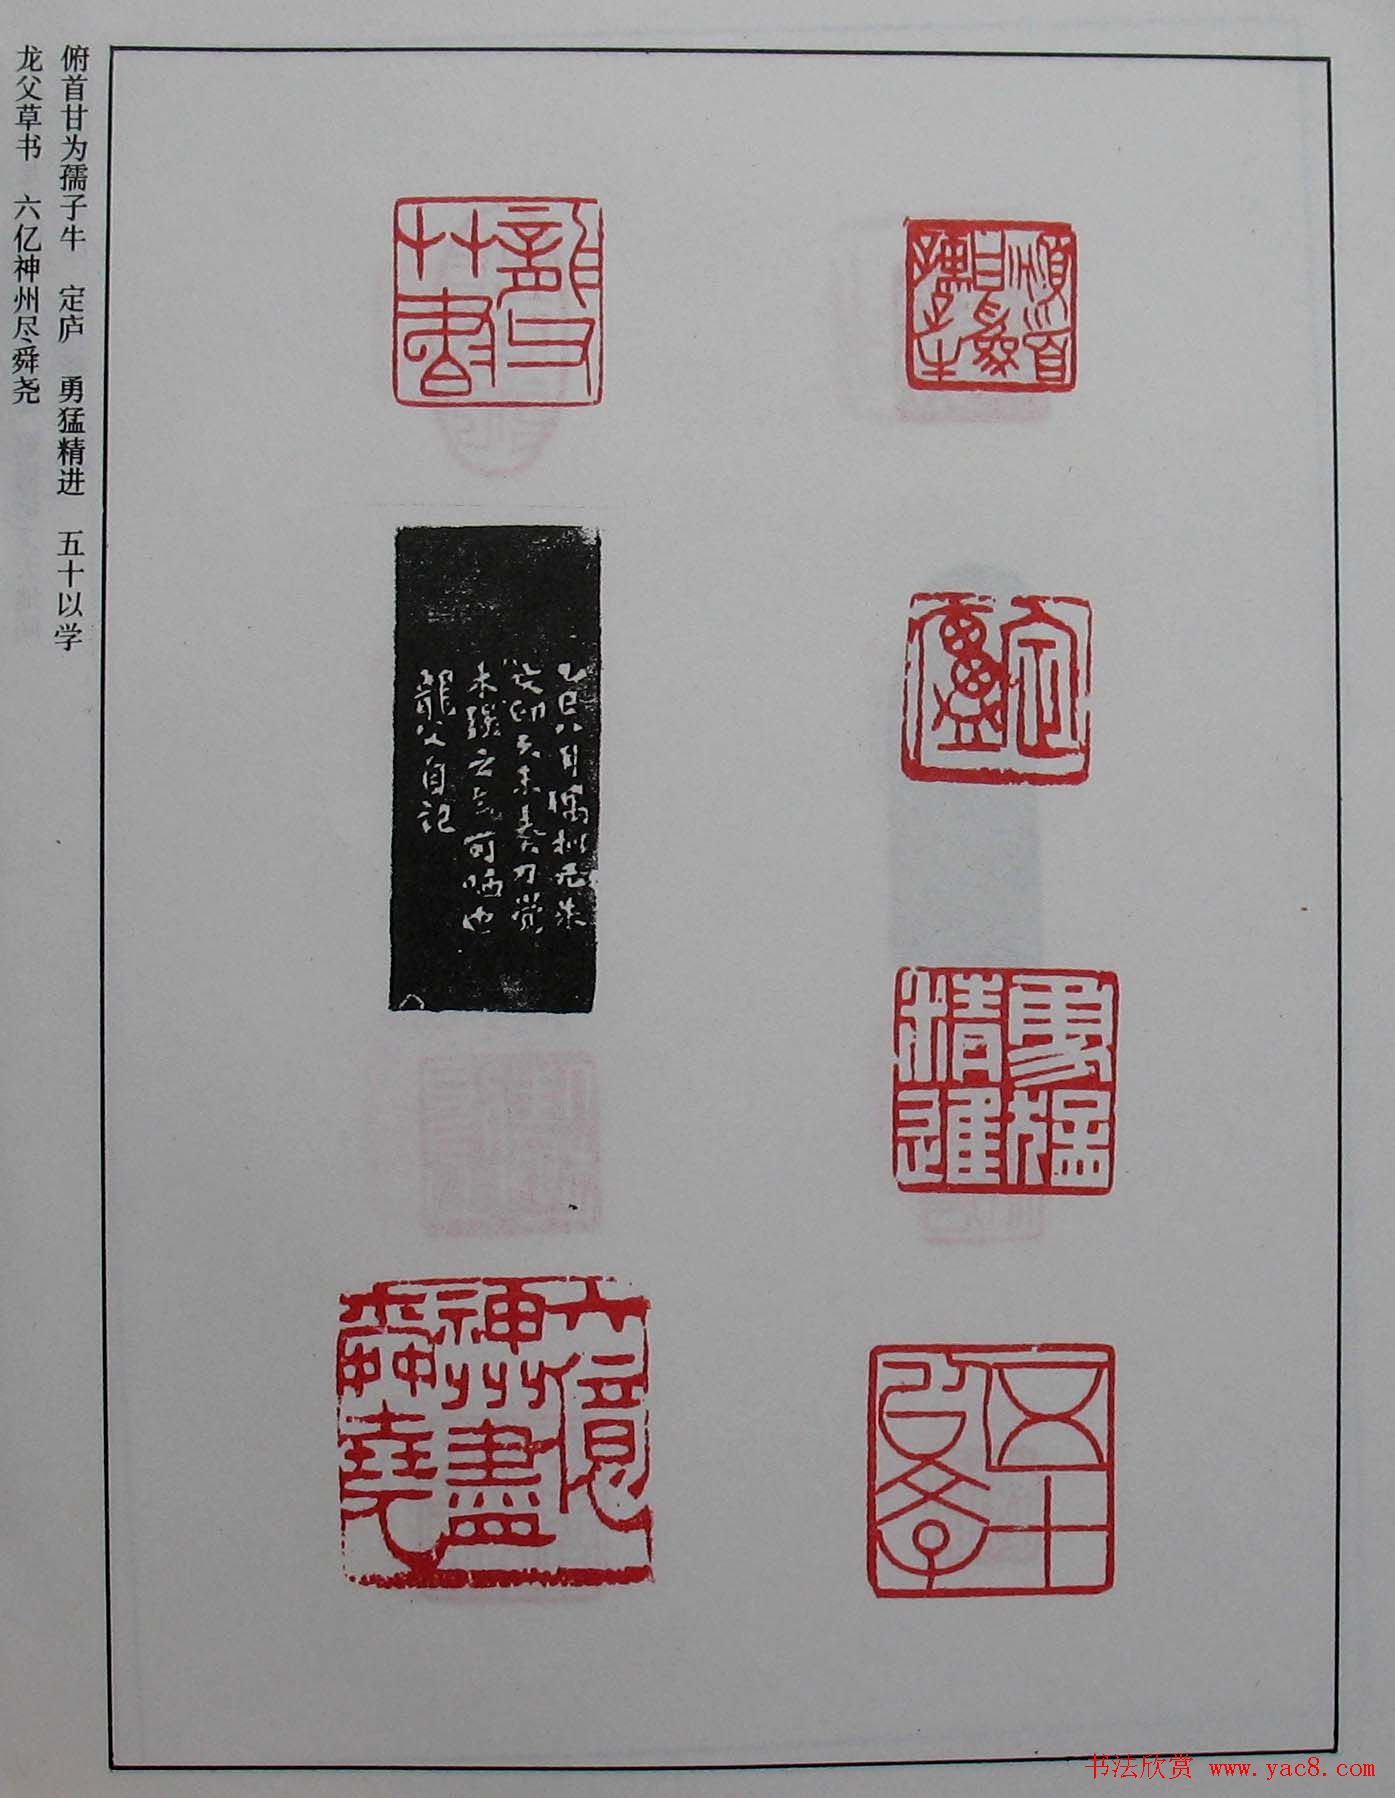 俯首甘为孺子牛 定庐 勇猛精进 五十以学
龙父草书 六亿神州尽舜尧
定廬
勇猛
精進
五十
以學
龍父
艸書
乙巳八月
龍父自記
六億
神州盡
舜堯
书法欣赏 www.yac8.com